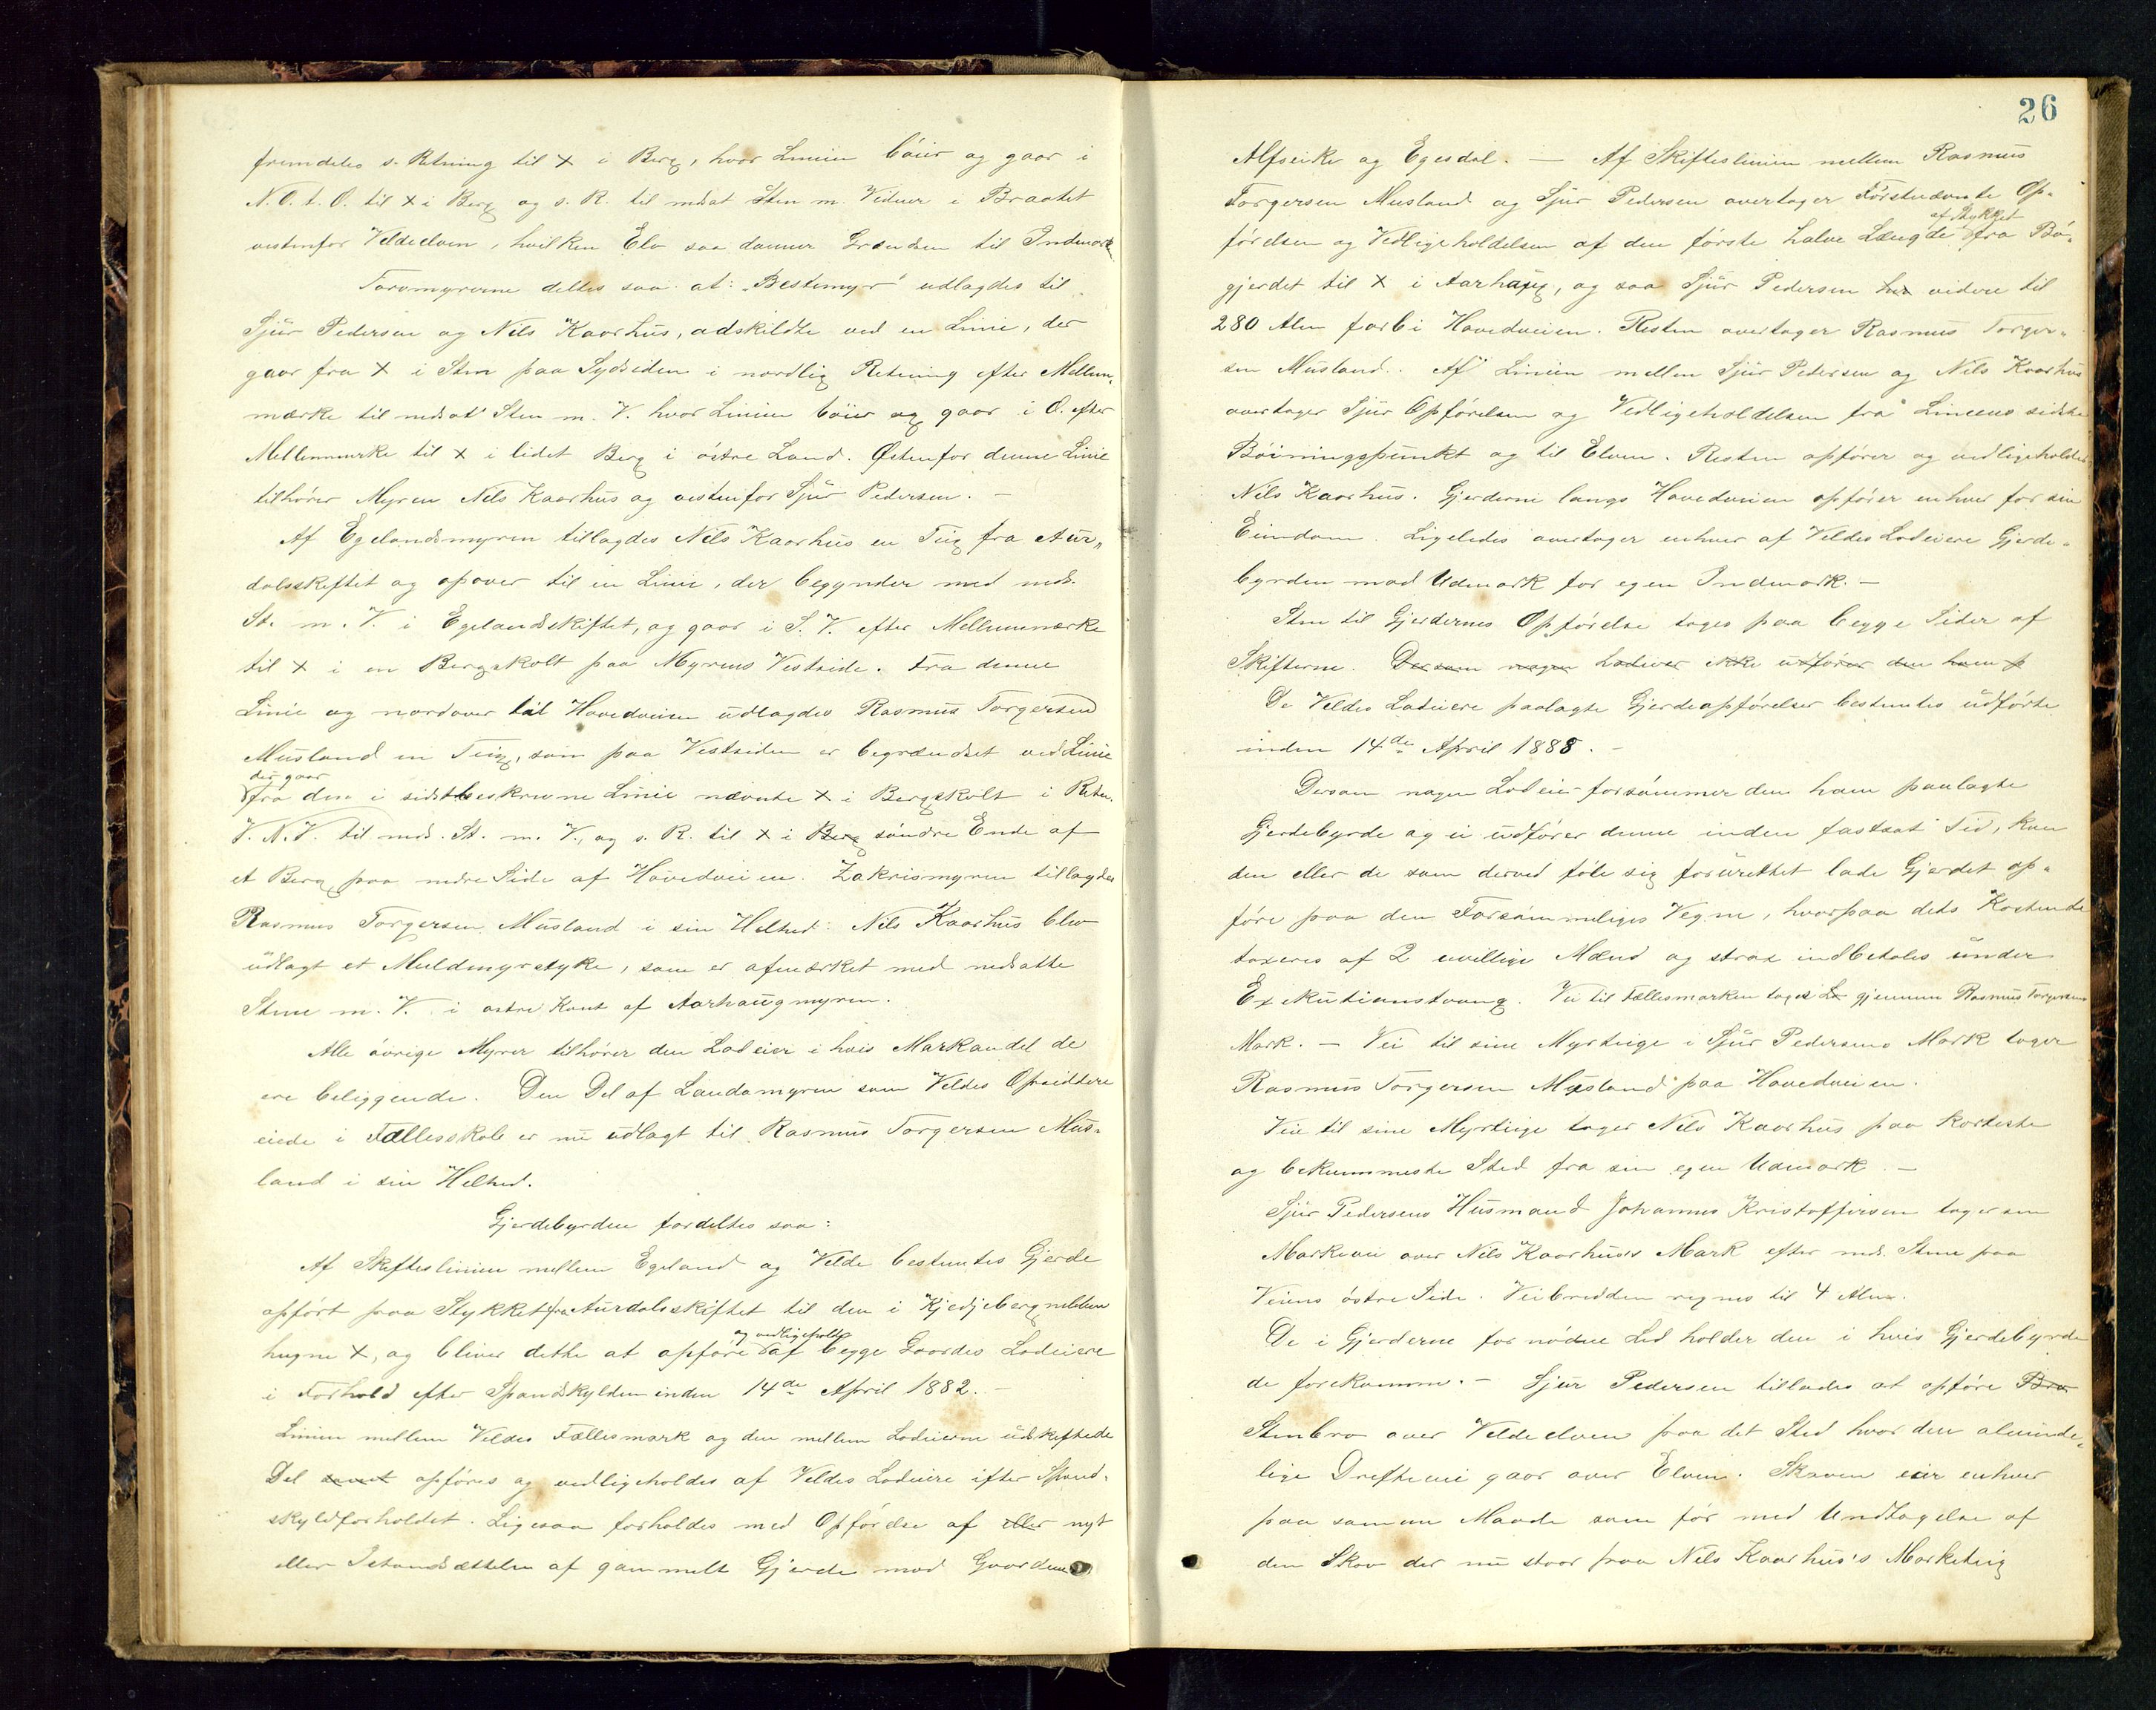 fremdeles s. Retning til X i Berg, hvor Linien böier og gaar i
N.O.t.O. til X i Berg og s. R. til nedsat Sten m. Vidner i Braatet
vestenfor Veldeelven, hvilken Elv saa danner Grændsen til Indmark.
Torvmyrerne deltes saa at: "Bestemyr" udlagdes til
Sjur Pedersen og Nils Kaarhus, adskildte ved en Linie, der
gaar fra X i Sten paa Sydsiden i nordlig Retning efter Mellem-
mærke til nedsat Sten m. V. hvor Linien böier og gaar i O. efter
Mellemmærke til X i lidet Berg i östre Land. Østenfor denne Linie
tilhörer Myren Nils Kaarhus og vestenfor Sjur Pedersen. -
Af Egelandsmyren tillagdes Nils Kaarhus en Teig fra Aur-
dalsskiftet og opover til en Linie, der begynder med neds.
St. m. V. i Egelandsskiftet, og gaar i S.V. efter Mellemmærke
til X i en Bergskolt paa Myrens Vestside. Fra denne
Linie og nordover til Hovedveien udlagdes Rasmus Torgersen
Musland en Teig, som paa Vestsiden er begrændset ved Linie
der gaar
fra den i sidstbeskrevne Linie nævnte X i Bergskolt i Retn.
V.N.V. til neds. St. m. V., og s. R. til X i Berg söndre Ende af
et Berg paa nedre Side af Hovedveien. Zakrismyren tillagdes
Rasmus Torgersen Musland i sin Helhed: Nils Kaarhus blev
udlagt et Muldmyrstyke, som er afmærket med nedsatte
Stene m. V. i østre Kant af Aarhaugmyren.
Alle övrige Myrer tilhörer den Lodeier i hvis Markandel de
ere beliggende. Den Del af Landamyren som Veldes Opsiddere
eiede i Fællesskab er nu udlagt til Rasmus Torgersen Mus-
land i sin Helhed.
Gjerdebyrden fordeltes saa:
Af Skifteslinien mellem Egeland og Velde bestemtes Gjerde
opfört paa Stykket fra Aurdalsskiftet til den i Kjedjeberg
hugne X, og bliver dette at opföre af begge Gaardes Lodeiere
og vedligeholde
i Forhold efter Spandskylden inden 14de April 1882. -
Linien mellem Veldes Fællesmark og den mellem Lodeierne udskiftede
Del samt opföres og vedligeholdes af Veldes Lodeiere efter Spand-
skyldforholdet. Ligesaa forholdes med Opförelse af eller nyt
eller Istandsættelse af gammelt Gjerde mod Gaardene
26
Alfseike og Egesdal. - Af Skifteslinien mellem Rasmus
Torgersen Musland og Sjur Pedersen overtager Förstnævnte Op-
af Stykket
förelsen og Vedligeholdelsen af den förste halve Længde fra Bö-
gjerdet til X i Aarhaug, og saa Sjur Pedersen videre til
280 Alen forbi Hovedveien. Resten overtager Rasmus Torger-
sen Musland. Af Linien mellem Sjur Pedersen og Nils Kaarhus
overtager Sjur Opförelsen og Vedligeholdelsen fra Liniens sidste
Böiningspunkt og til Elven. Resten opförer og vedligeholder
Nils Kaarhus. Gjerderne langs Hovedveien opförer enhver for sin
Eiendom. Ligeledes overtager enhver af Veldes Lodeiere Gjerde-
byrden mod Udmark for egen Indmark. -
Sten til Gjerdernes Opförelse tages paa begge Sider af
Skifterne. Dersom nogen Lodeier ikke udförer den ham p
De Veldes Lodeiere paalagte Gjerdeopförelser bestemtes udförte
inden 14de April 1888. -
Dersom nogen Lodeier forsömmer den ham paalagte
Gjerdebyrde og ei udförer denne inden fastsat Tid, kan
den eller de som derved föle sig forurettet lade Gjerdet op-
före paa den Forsömmeliges Vegne, hvorpaa dets Kostende
taxeres af 2 uvillige Mænd og strax indbetales under
Exekutionstvang. Vei til Fællesmarken tages gjennem Rasmus Torgersens
Mark. - Vei til sine Myrteige i Sjur Pedersens Mark tager
Rasmus Torgersen Musland paa Hovedveien.
Vei til sine Myrteige tager Nils Kaarhus paa korteste
og bekvemmeste Sted fra sin egen Udmark. -
Sjur Pedersens Husmand Johannes Kristoffersen tager sin
Markevei over Nils Kaarhus's Mark efter neds. Stene paa
Veiens östre Side. Veibredden regnes til 4 Alen.
De i Gjerderne fornödne Led holder den i hvis Gjerdebyrde
de forekomme. - Sjur Pedersen tillades at opföre Bro
Stenbro over Veldeelven paa det Sted hvor den alminde-
lige Driftevei gaar over Elven. Skoven eier enhver
paa samme Maade som för med Undtagelse af
den Skov der nu staar paa Nils Kaarhus's Marketeig